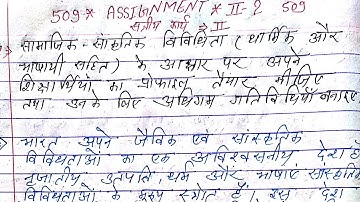 509 * ASSIGNMENT * II-2 509
सत्रीय कार्य II
सामाजिक-सांस्कृतिक विविधिता (धार्मिक और
भाषायी सहित) के आधार पर अपने
शिक्षार्थियों का प्रोफाइल तैयार कीजिए
तथा उनके लिए अधिगम गतिविधियाँ बनाइए
भारत अपने जैविक एवं सांस्कृतिक
विविधताओं का एक अविश्वसनीय देश है
नृजातीय उत्पत्ति, धर्म और भाषाएं सांस्कृतिक
विविधताओं के प्रमुख स्त्रोत हैं। इस देश